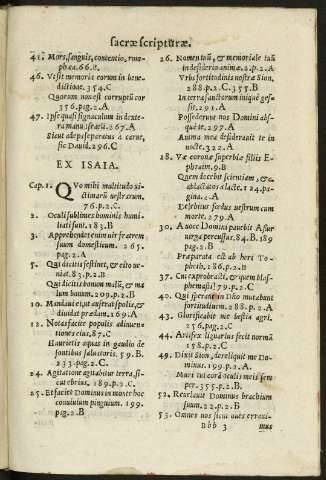 sacræ scripturæ.
41. Mors, sanguis, contentio, romphæa. 66.C.
46. Vt sit memoria eorum in benedictione. 354.C
Quorum non est corruptū cor 356. pag. 2. A
47. Ipse quasi signaculum in dextera manu israël. 267. A
Sicut adeps separatus à carne, sic Dauid. 296. C
EX ISAIA.
Cap. 1. QVo mihi multitudo victimarū vestrarum. 76. p. 2. C.
2. Oculi sublimes hominis humiliati sunt. 183. B
3. Apprehendet enim vir fratrem suum domesticum. 265. pag. 2. A
5. Qui dicitis festinet, & cito veniat. 83. p. 2. B
Qui dicitis bonum malū, & malum bonum. 209. p. 2. B
10. Manum eius, ut auferat spolia, & diuidat prædam. 169. A
12. Notas facite populis adinuentiones eius, 87. C
Haurietis aquas in gaudio de fontibus saluatoris. 59. B. 233. pag. 2. C.
24. Agitatione agitabitur terra, sicut ebrius. 189. p. 2. C.
25. Et faciet Dominus in monte hoc conuiuium pinguium. 199. pag. 2. B
26. Nomen tuū, & memoriale tuū in desiderio animæ. 2. p. 2. A
Vrbs fortitudinis nostræ Sion. 288. p. 2. C. 355. B
In terra sanctorum iniquè gessit. 291. A
Possederunt nos Domini absque te. 297. A
Anima mea desiderauit te in nocte. 322. A
18. Væ coronæ superbiæ filiis Ephraim. 9. B
Quem docebit scientiam, & c. ablactatos à lacte. 124. pagina. 2. A
Delebitur fœdus vestrum cum morte. 279. A
30. A voce Domini pauebit Assur virga percussus. 84. B. 189 pag. 2. B
Præparata est ab heri Topheth. 286. p. 2. B
37. Cui exprobrasti, & quem blasphemasti? 79. p. 2. C
40. Qui sperant in Dño mutabunt fortitudinem. 288. p. 2. A
43. Glorificabit me bestia agri. 256. pag. 2. C
44. Artifex lignarius fecit normā 158. p. 2. C
49. Dixit Sion, dereliquit me Dominus. 199. p. 2. A
Muri tui corā oculis meis semper. 355. p. 2. B
52. Reuelauit Dominus brachium suum. 22. p. 2. B
53. Omnes nos sicut oues erraui-
Bbb 3 mus